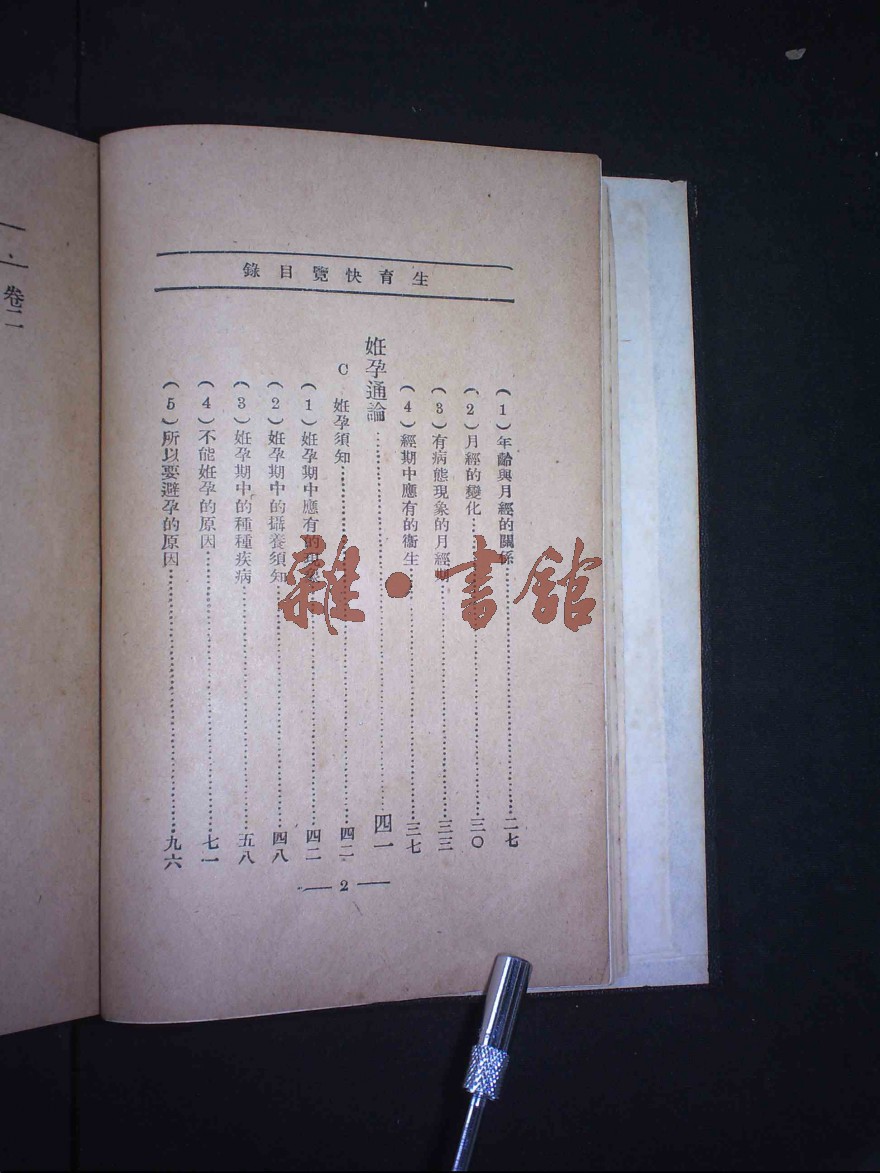 生育快覽目錄
（1）年齡與月經的關係……二七
（2）月經的變化……三〇
（3）有病態現象的月經期……三三
（4）經期中應有的衞生……三七
姙孕通論……四一
C 姙孕須知……四二
（1）姙孕期中應有的現象……四二
（2）姙孕期中的攝養須知……四八
（3）姙孕期中的種種疾病……五八
（4）不能姙孕的原因……七一
（5）所以要避孕的原因……九六
— 2 —
卷二
雜·書館